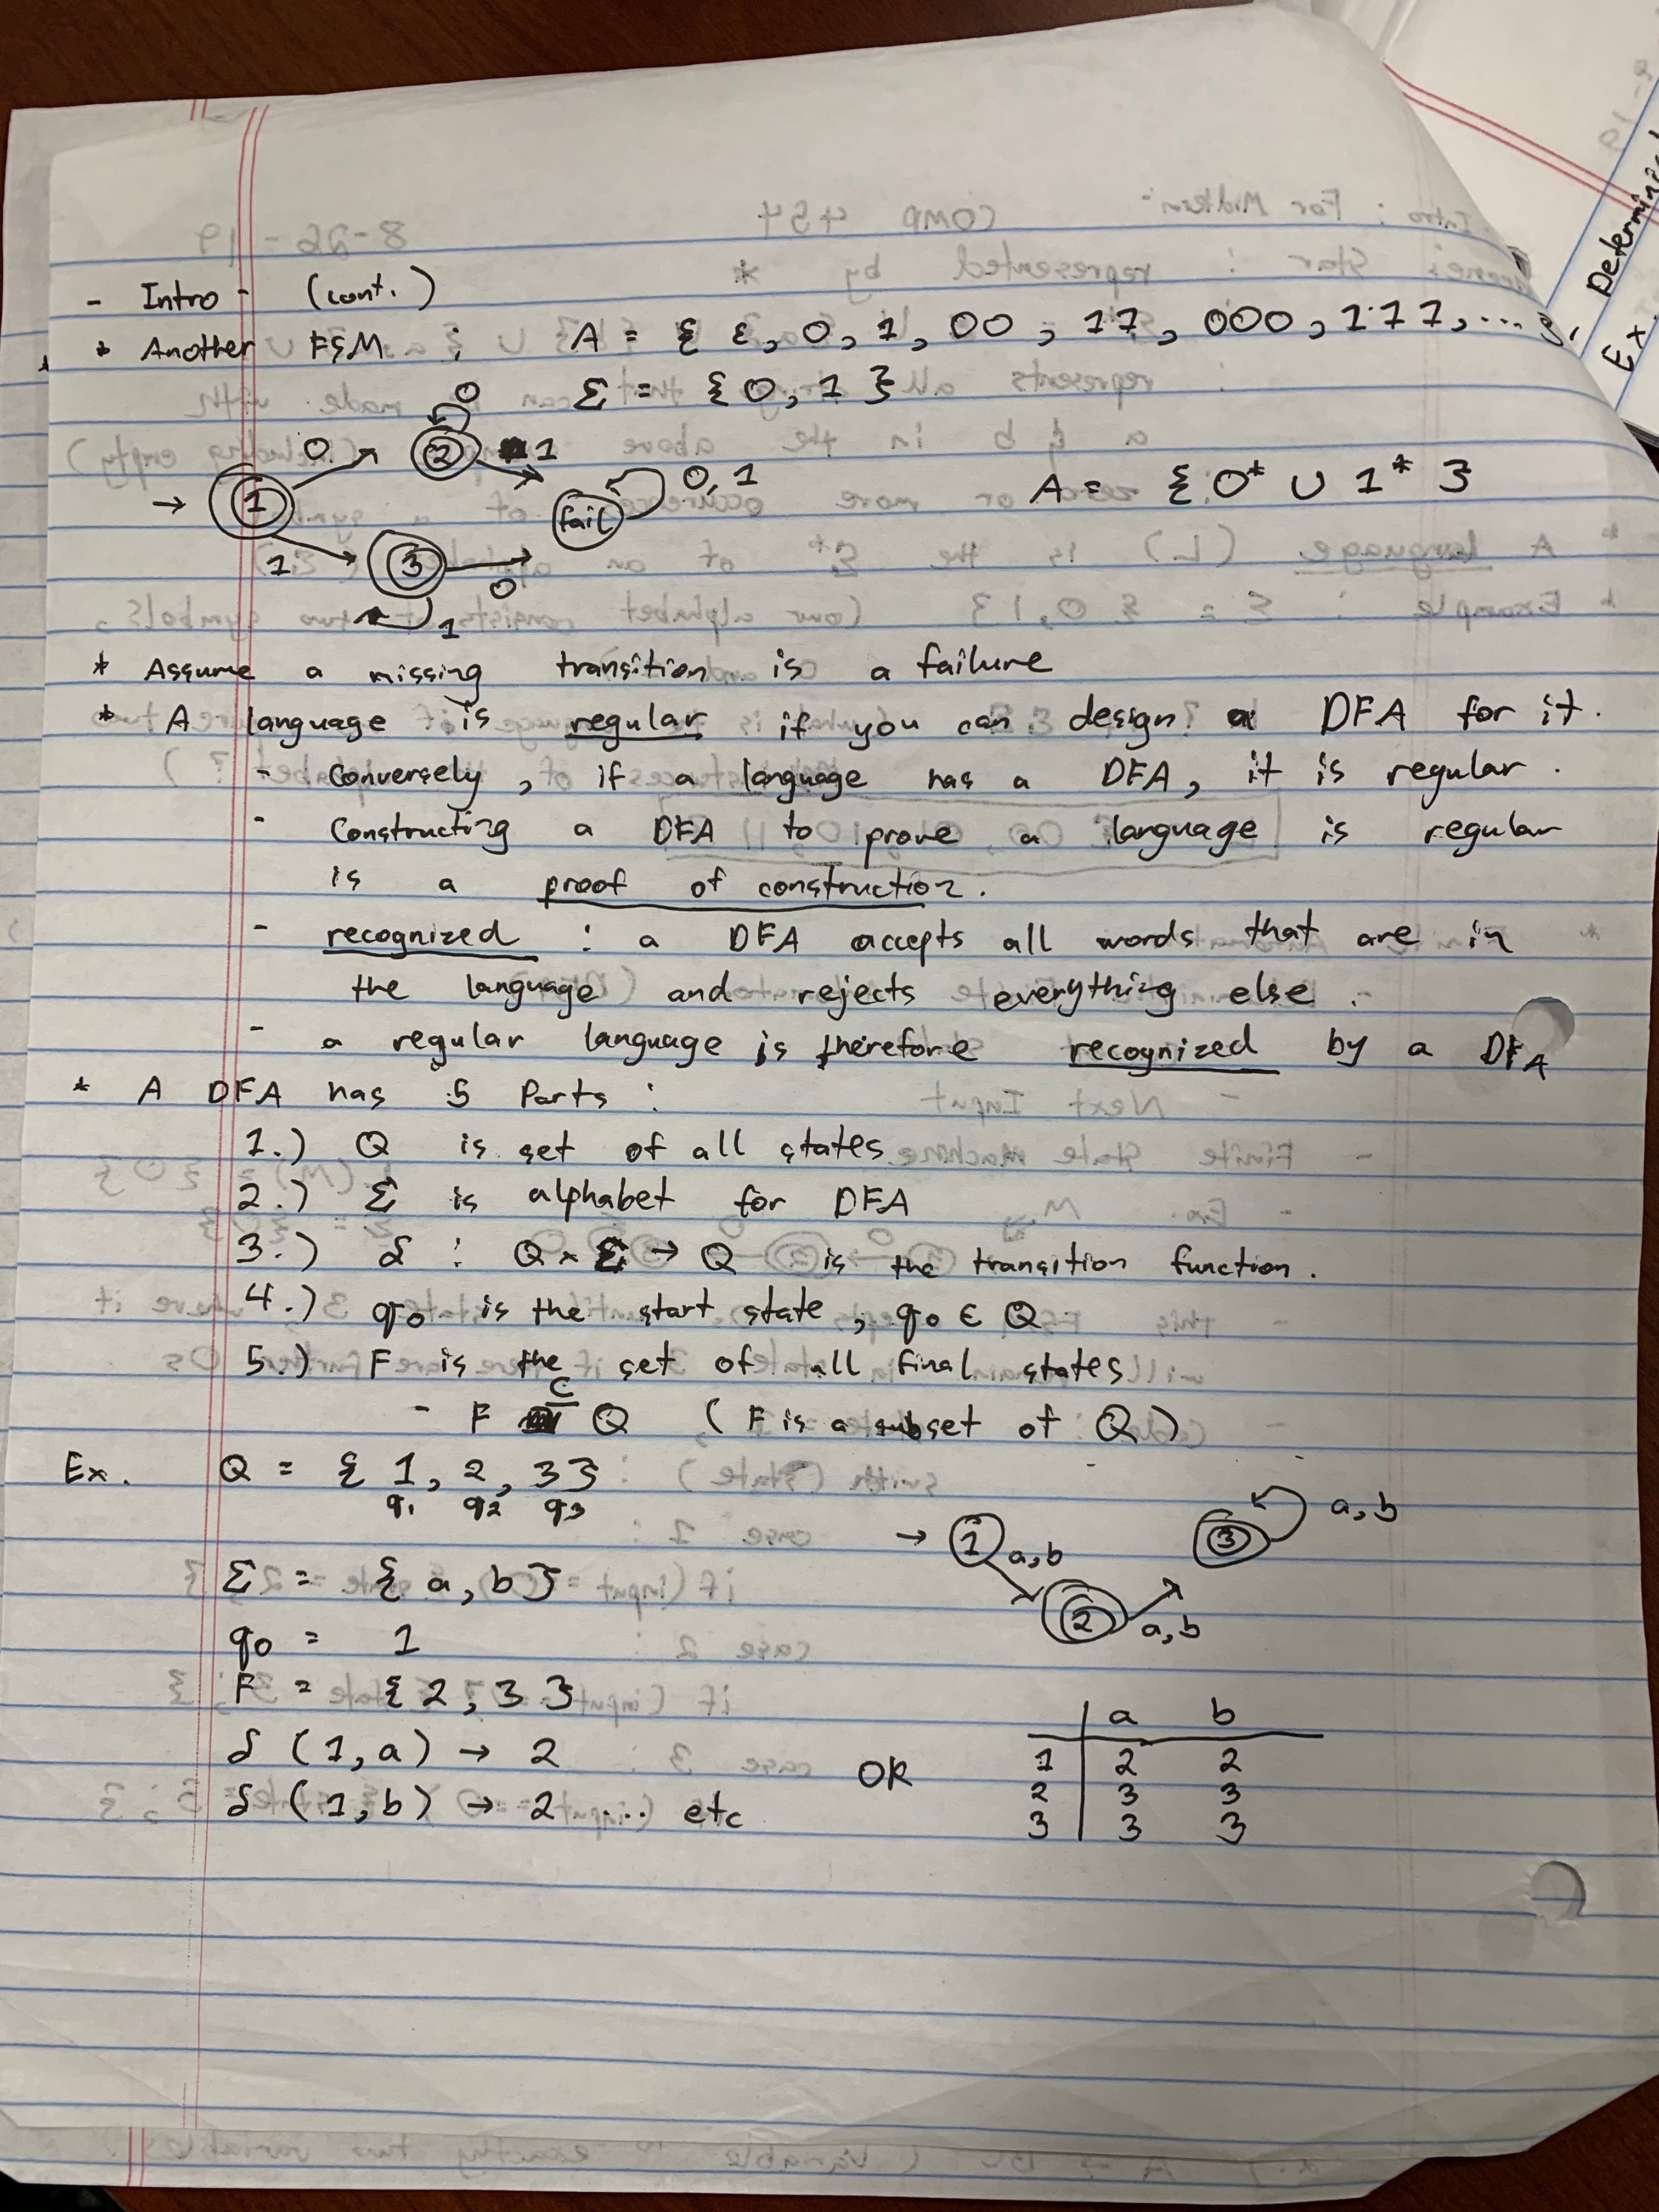 - Intro - (cont.)
* Another FSM : A = { ε, 0, 1, 00, 11, 000, 111, ... },
Σ = { 0, 1 }
0
0 2 1
→ 1 fail 0, 1 A = { 0* ∪ 1* }
1 3 0
1
* Assume a missing transition is a failure
* A language is regular if you can design a DFA for it.
- conversely, if a language has a DFA, it is regular.
- Constructing a DFA to prove a language is regular
is a proof of construction.
- recognized : a DFA accepts all words that are in
the language and rejects everything else.
- a regular language is therefore recognized by a DFA
* A DFA has 5 Parts :
1.) Q is set of all states
2.) Σ is alphabet for DFA
3.) δ : Q × Σ → Q is the transition function.
4.) q0 is the start state, q0 ∈ Q
5.) F is the set of all final states
- F ⊆ Q ( F is a subset of Q )
Ex. Q = { 1, 2, 3 }
q1 q2 q3
→ 1 a,b 3 a, b
2 a,b
Σ = { a, b }
q0 = 1
F = { 2, 3 }
δ (1, a) → 2
δ (1, b) → 2 ... etc
OR
a b
1 2 2
2 3 3
3 3 3
Ex.